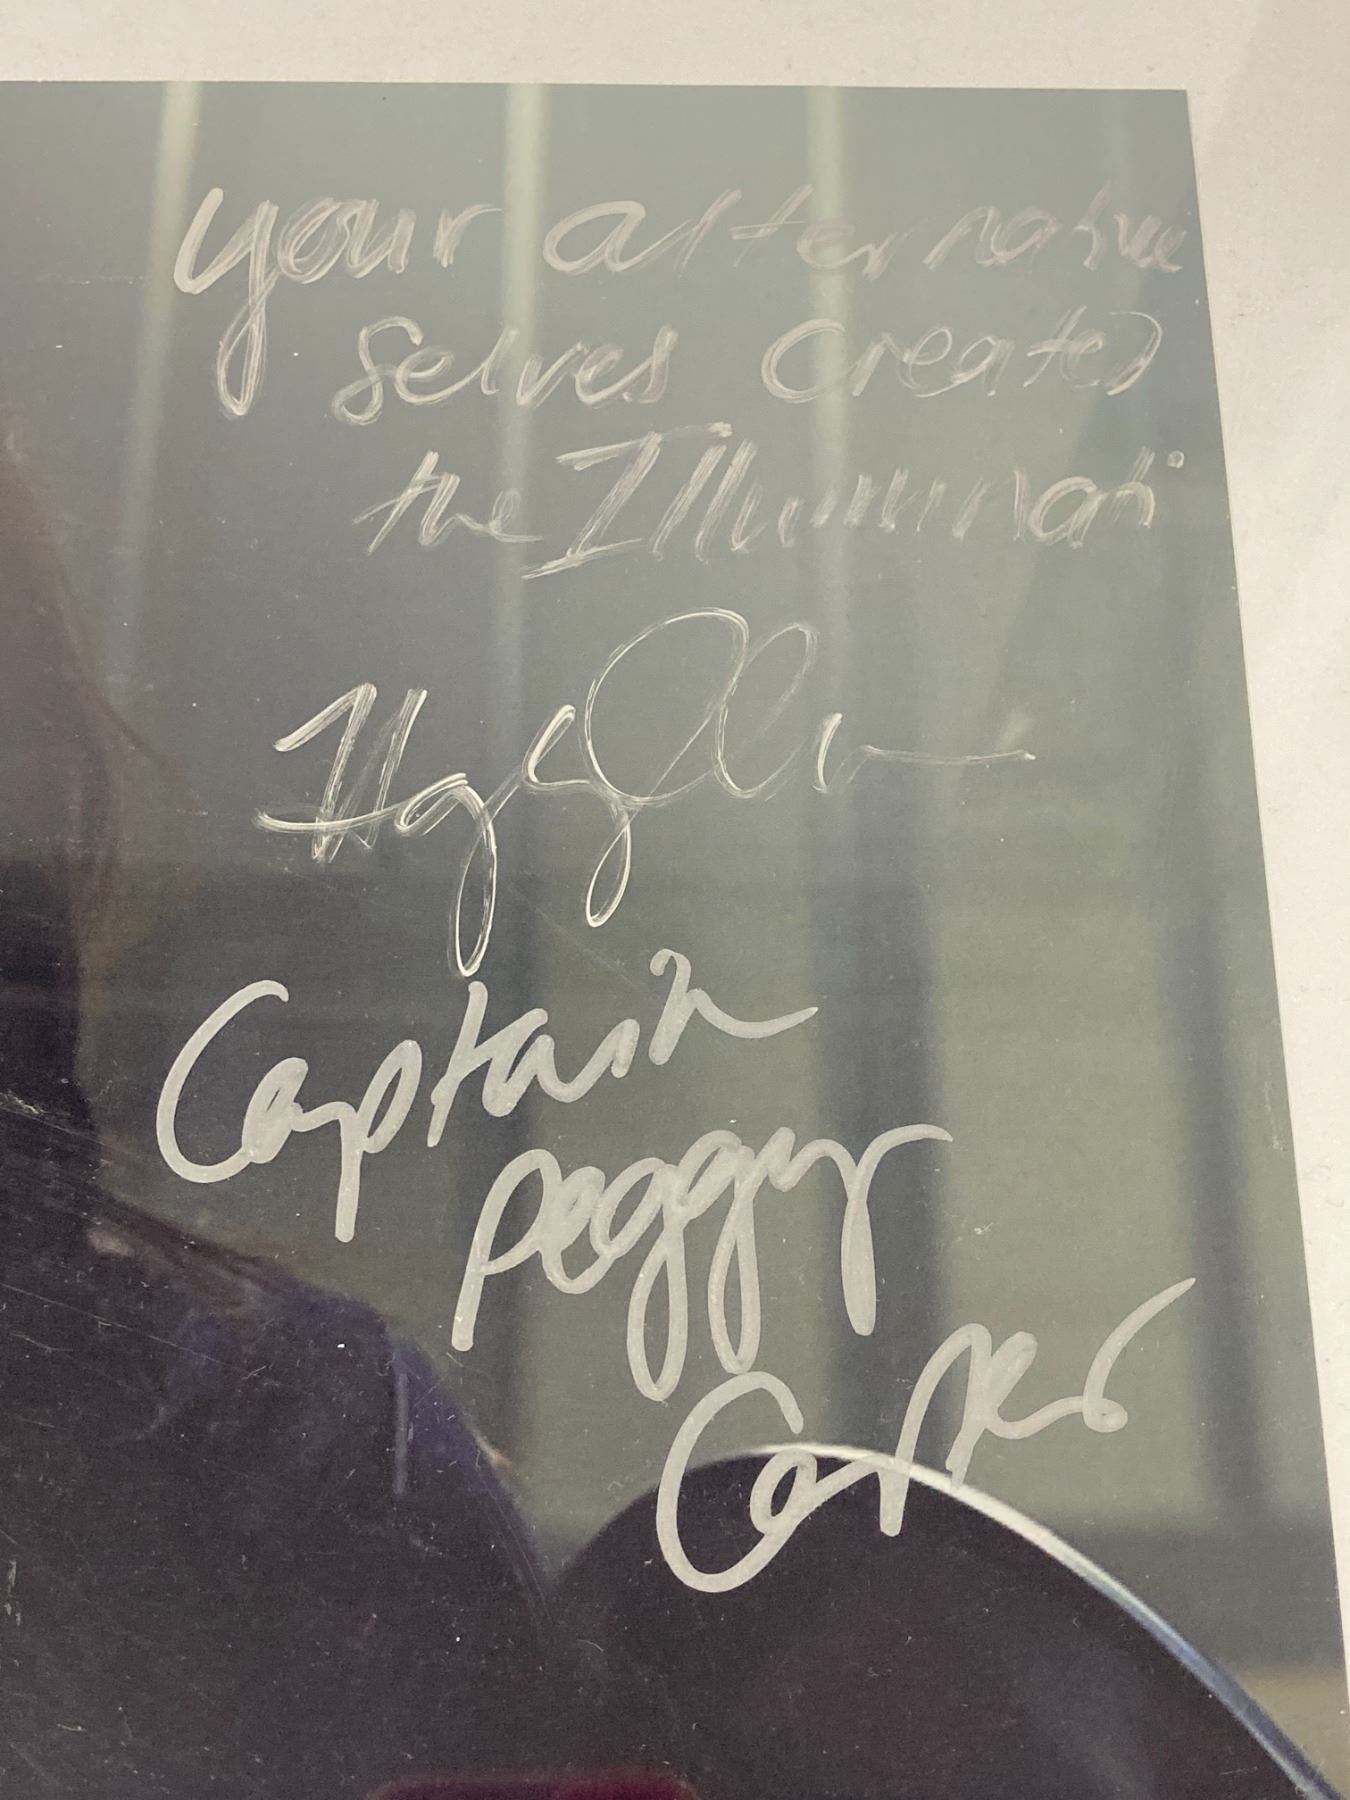 your alternative
selves created
the Illuminati
Captain
Peggy
Carter